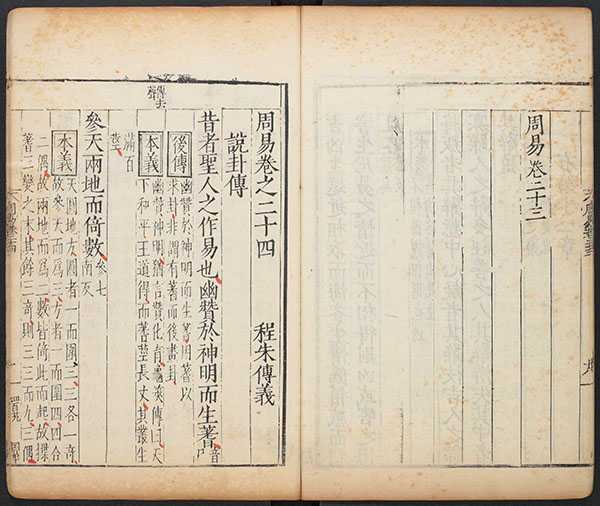 周易卷二十三
周易卷之二十四
說卦傳 程朱傳義
昔者聖人之作易也幽贊於神明而生蓍音
後傳
幽贊於神明而生蓍用蓍以
求卦非謂有蓍而後畫卦
本義
幽贊神明猶言贊化育龜筴傳曰天
下和平王道得而蓍莖長丈其叢生
滿百
莖
參天兩地而倚數
參七
南反
本義
天圓地方圓者一而圍三三各一奇
故參天而爲三方者一而圍四四合
二偶故兩地而爲二數皆倚此而起故揲
蓍三變之末其餘三奇則三三而九三偶